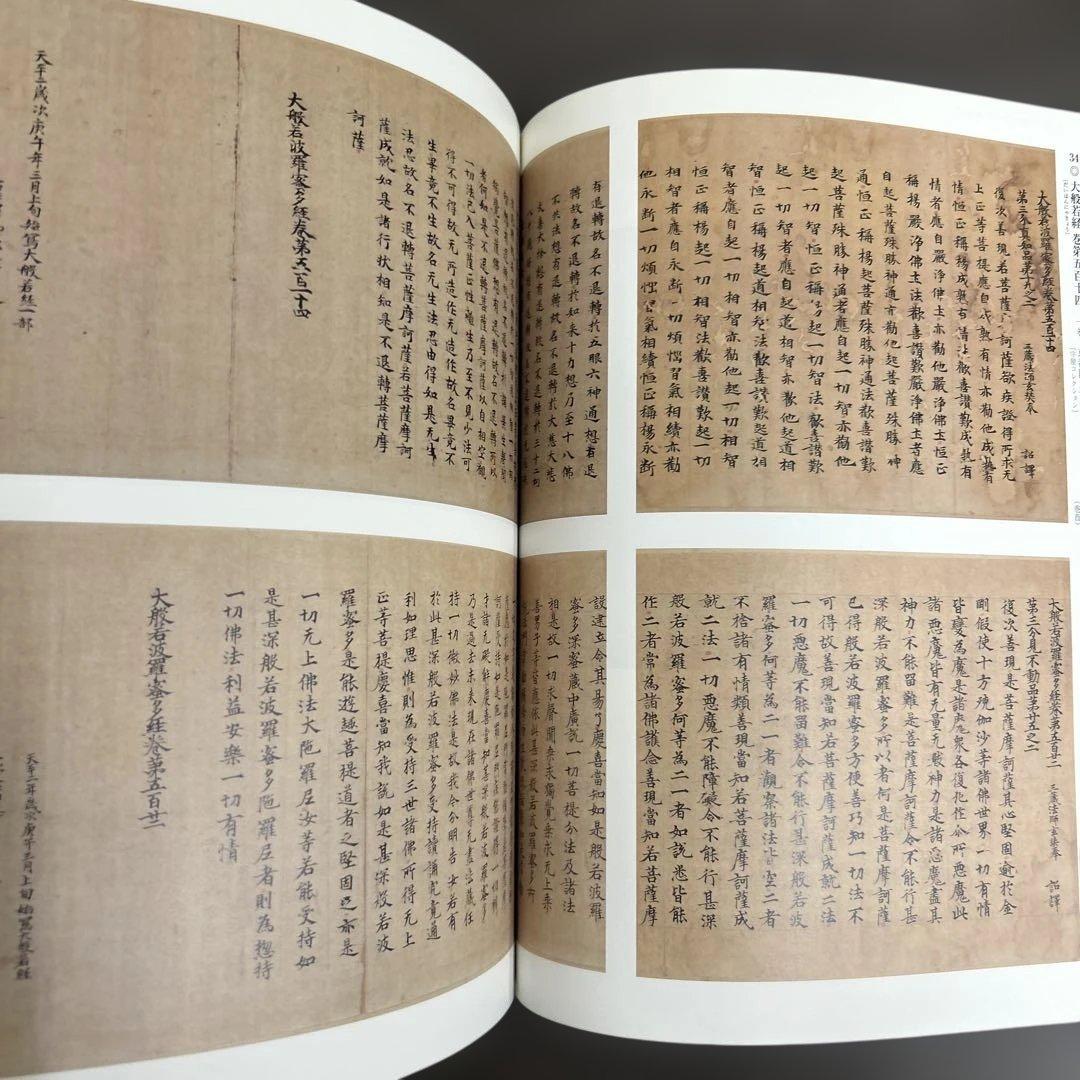 34 ◎大般若経 巻第五百十四
大般若波羅蜜多経巻第五百一十四
第三分真如品第十九之二 三蔵法師玄奘奉 詔譯
復次善現若菩薩摩訶薩欲疾證得所求无
上正等菩提應自成熟有情亦勸他成熟有
情恒正稱揚成熟有情法歡喜讃歎成熟有
情者應自嚴淨佛土亦勸他嚴淨佛土恒正
稱揚嚴淨佛土法歡喜讃歎嚴淨佛土者應
自起菩薩殊勝神通亦勸他起菩薩殊勝神
通恒正稱揚起菩薩殊勝神通法歡喜讃歎
起菩薩殊勝神通者應自起一切智亦勸他
起一切智恒正稱揚起一切智法歡喜讃歎
起一切智者應自起道相智亦勸他起道相
智恒正稱揚起道相智法歡喜讃歎起道相
智者應自起一切相智亦勸他起一切相智
恒正稱揚起一切相智法歡喜讃歎起一切
相智者應自永斷一切煩惱習氣相續亦勸
他永斷一切煩惱習氣相續恒正稱揚永斷
有退轉故名不退轉於五眼六神通想有退
轉故名不退轉於如来十力想乃至十八佛
不共法想有退轉故名不退轉於大慈大悲
大喜大捨想有退轉故名不退轉於三十二相
一切法已入菩薩正性離生乃至不見少法可
得不可得故无所造作无造作故名畢竟不
生畢竟不生故名无生法忍由得如是无生
法忍故名不退轉菩薩摩訶薩若菩薩摩訶
薩成就如是諸行状相知是不退轉菩薩摩
訶薩
大般若波羅蜜多経巻第五百一十四
天平二歳次庚午年三月上旬始寫大般若経一部
大般若波羅蜜多経巻第五百廿二
第三分見不動品第廿五之二 三蔵法師玄奘奉 詔譯
復次善現是菩薩摩訶薩其心堅固逾於金
剛假使十方殑伽沙等諸佛世界一切有情
皆變為魔是諸魔衆各復化作尒所惡魔此
諸惡魔皆有无量无數神力是諸惡魔盡其
神力不能留難是菩薩摩訶薩令不能行甚
深般若波羅蜜多所以者何是菩薩摩訶薩
已得般若波羅蜜多方便善巧知一切法不
可得故善現當知若菩薩摩訶薩成就二法
一切惡魔不能留難令不能行甚深般若波
羅蜜多何等為二一者觀察諸法皆空二者
不捨諸有情類善現當知若菩薩摩訶薩成
就二法一切惡魔不能障礙令不能行甚深
般若波羅蜜多何等為二一者如説悉皆能
作二者常為諸佛護念善現當知若菩薩摩
設建立令其易了慶喜當知如是般若波羅
蜜多深蜜藏中廣説一切菩提分法及諸法
相是故一切求聲聞乘求獨覺乘求无上乘
善男子等皆應依此甚深般若波羅蜜多
才諸无礙解慶喜當知甚深般若波羅蜜多
乃是過去未来現在諸佛世尊无盡法藏任
持一切微妙佛法是故我今分明告汝若有
於此甚深般若波羅蜜多受持讀誦究竟通
利如理思惟則為受持三世諸佛所得无上
正等菩提慶喜當知我説如是甚深般若波
羅蜜多是能遊趣菩提道者之堅固迹亦是
一切无上佛法大陁羅尼汝等若能受持如
是甚深般若波羅蜜多陁羅尼者則為揔持
一切佛法利益安樂一切有情
大般若波羅蜜多経巻第五百廿二
天平二年歳次庚午三月上旬始寫大般若経